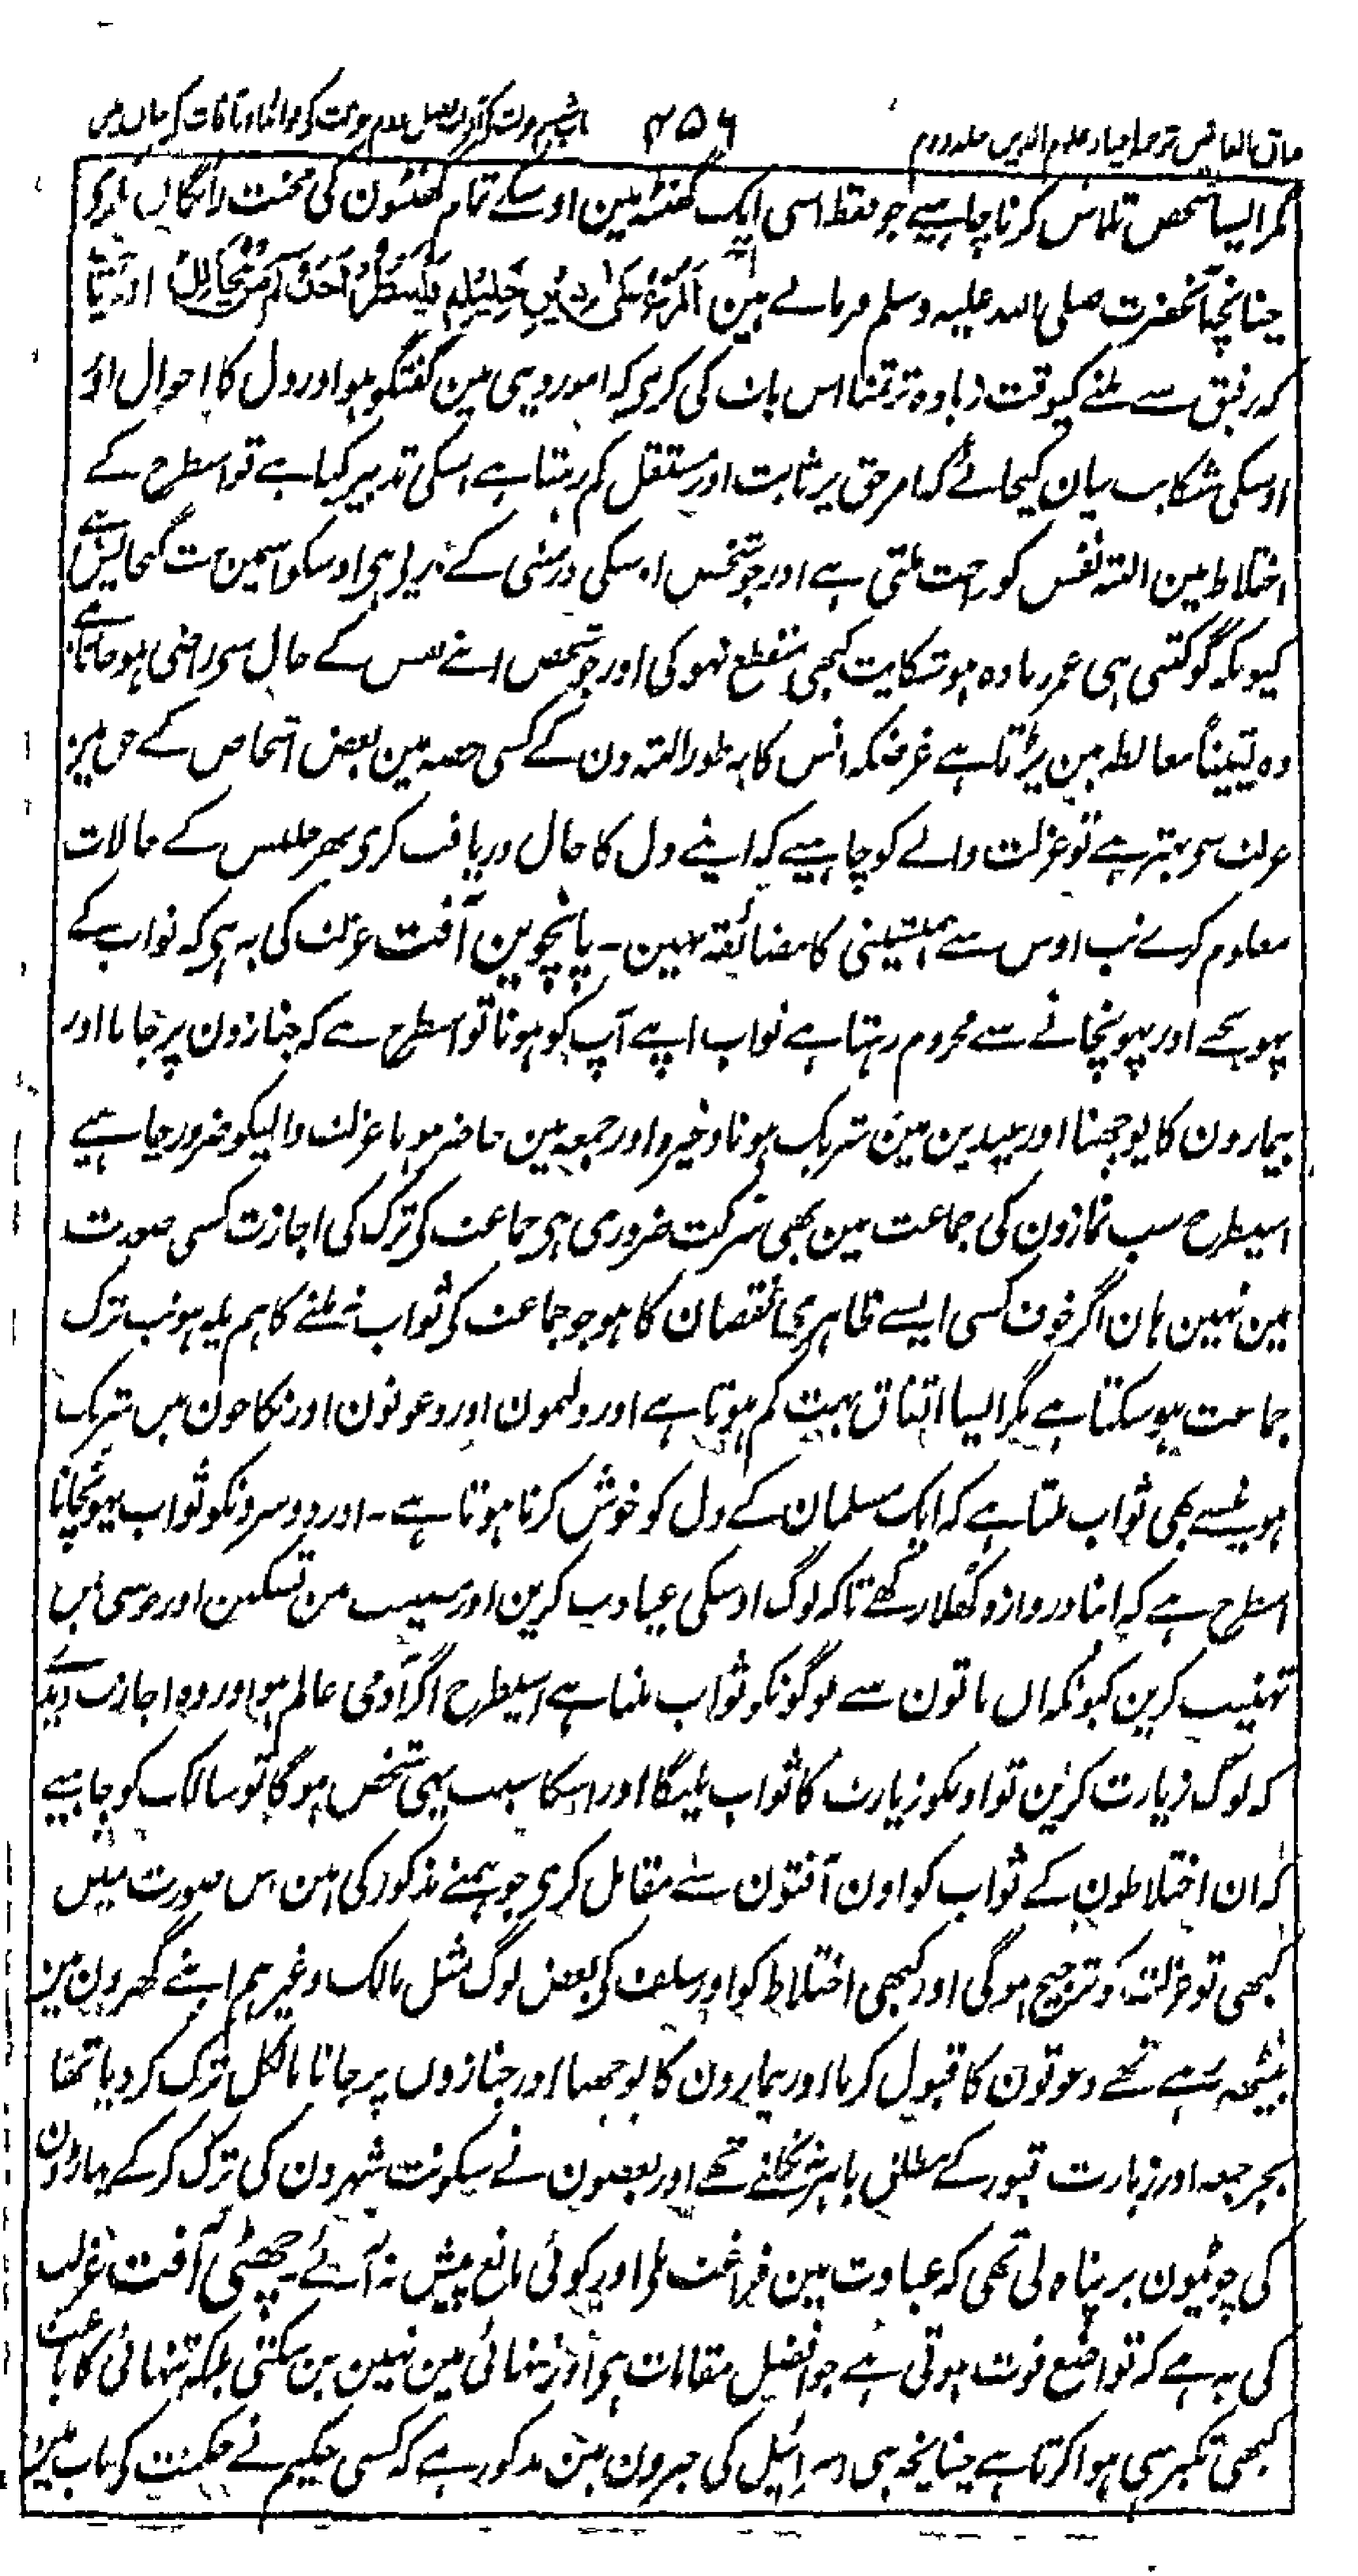 مذاق العارفین ترجمہ احیاء علوم الدین جلد دوم ۴۵۶ باب ششم عزلت کے فصل دوم عزلت کے فوائد اور آفات کے بیان میں
مگر ایسا شخص تلاش کرنا چاہیے جو فقط اسی ایک گھنٹہ مین اوسکے تمام گھنٹون کی محنت رائگاں نکری
چنانچہ آنحضرت صلی اللہ علیہ وسلم فرماتے ہین المرء علی دین خلیلہ فلینظر احدکم من یخالل اور
کہ رفیق سے ملنے کیوقت زیادہ تر تمنا اس بات کی کری کہ امور دینی مین گفتگو ہو اور دل کا احوال اور
اوسکی شکایت بیان کیجائے کہ امر حق پر ثابت اور مستقل کم رہتا ہے اسکی تدبیر کیا ہے تو اسطرح کے
اختلاط مین البتہ نفس کو راحت ملتی ہے اور جو شخص اوسکی درستی کے درپے ہی اوسکو اسمین بہت گنجایش ہے
کیونکہ گو کتنی ہی عمر زیادہ ہو شکایت کبھی منقطع نہوگی اور جو شخص اپنے نفس کے حال سے راضی ہو جاتا ہے
وہ یقیناً مغالطہ مین پڑتا ہے غرضکہ انس کا یہ طور البتہ دن کے کسی حصہ مین بعض اشخاص کے حق مین
عزلت سے بہتر ہے تو عزلت والے کو چاہیے کہ اپنے دل کا حال دریافت کری پھر جلیس کے حالات
معلوم کرے تب اوس سے ہمنشینی کا مضائقہ نہین ۔ پانچوین آفت عزلت کی یہ ہی کہ ثواب کے
پہونچنے اور پہونچانے سے محروم رہتا ہے ثواب اپنے آپ کو ہونا تو اسطرح ہے کہ جنازون پر جانا اور
بیمارون کا پوچھنا اور عیدین مین شریک ہونا وغیرہ اور جمعہ مین حاضر ہونا عزلت والیکو ضرور چاہیے
اسیطرح سب نمازون کی جماعت مین بھی شرکت ضروری ہی جماعت کی ترک کی اجازت کسی صورت
مین نہین ہان اگر خوف کسی ایسے ظاہری نقصان کا ہو جو جماعت کی ثواب نہ ملنے کا ہم پلہ ہو تب ترک
جماعت ہو سکتا ہے مگر ایسا اتفاق بہت کم ہوتا ہے اور ولیمون اور دعوتون اور نکاحون میں شریک
ہونیسے بھی ثواب ملتا ہے کہ ایک مسلمان کے دل کو خوش کرنا ہوتا ہے ۔ اور دوسرونکو ثواب پہونچانا
اسطرح ہے کہ اپنا دروازہ کھلا رکھے تاکہ لوگ اوسکی عیادت کرین اور مصیبت مین تسکین اور خوشی میں
تہنیت کرین کیونکہ ان باتون سے لوگونکو ثواب ملتا ہے اسیطرح اگر آدمی عالم ہو اور وہ اجازت دیگا
کہ لوگ زیارت کرین تو اونکو زیارت کا ثواب ملیگا اور اسکا سبب یہی شخص ہوگا تو سالک کو چاہیے
کہ ان اختلاطون کے ثواب کو اون آفتون سے مقابل کرے جو ہمنے مذکور کی ہین اس صورت میں
کبھی تو عزلت کو ترجیح ہوگی اور کبھی اختلاط کو اور سلف کی بعض لوگ مثل مالک وغیرہم اپنے گھرون مین
بیٹھہ رہے تھے دعوتون کا قبول کرنا اور بیمارون کا پوچھنا اور جنازوں پر جانا بالکل ترک کر دیا تھا
بجز جمعہ اور زیارت قبور کے مطلق باہر نہ نکلتے تھے اور بعضون نے سکونت شہرون کی ترک کرکے پہاڑون
کی چوٹیون پر پناہ لی تھی کہ عبادت مین فراغت ملی اور کوئی مانع پیش نہ آئے ۔ چھٹی آفت عزلت
کی یہ ہے کہ تواضع فوت ہوتی ہے جو افضل مقامات ہی اور تنہائی مین نہین بن سکتی بلکہ تنہائی کا باعث
کبھی تکبر ہی ہوا کرتا ہے چنانچہ بنی اسرائیل کی خبرون مین مذکور ہے کہ کسی حکیم نے حکمت کے باب مین